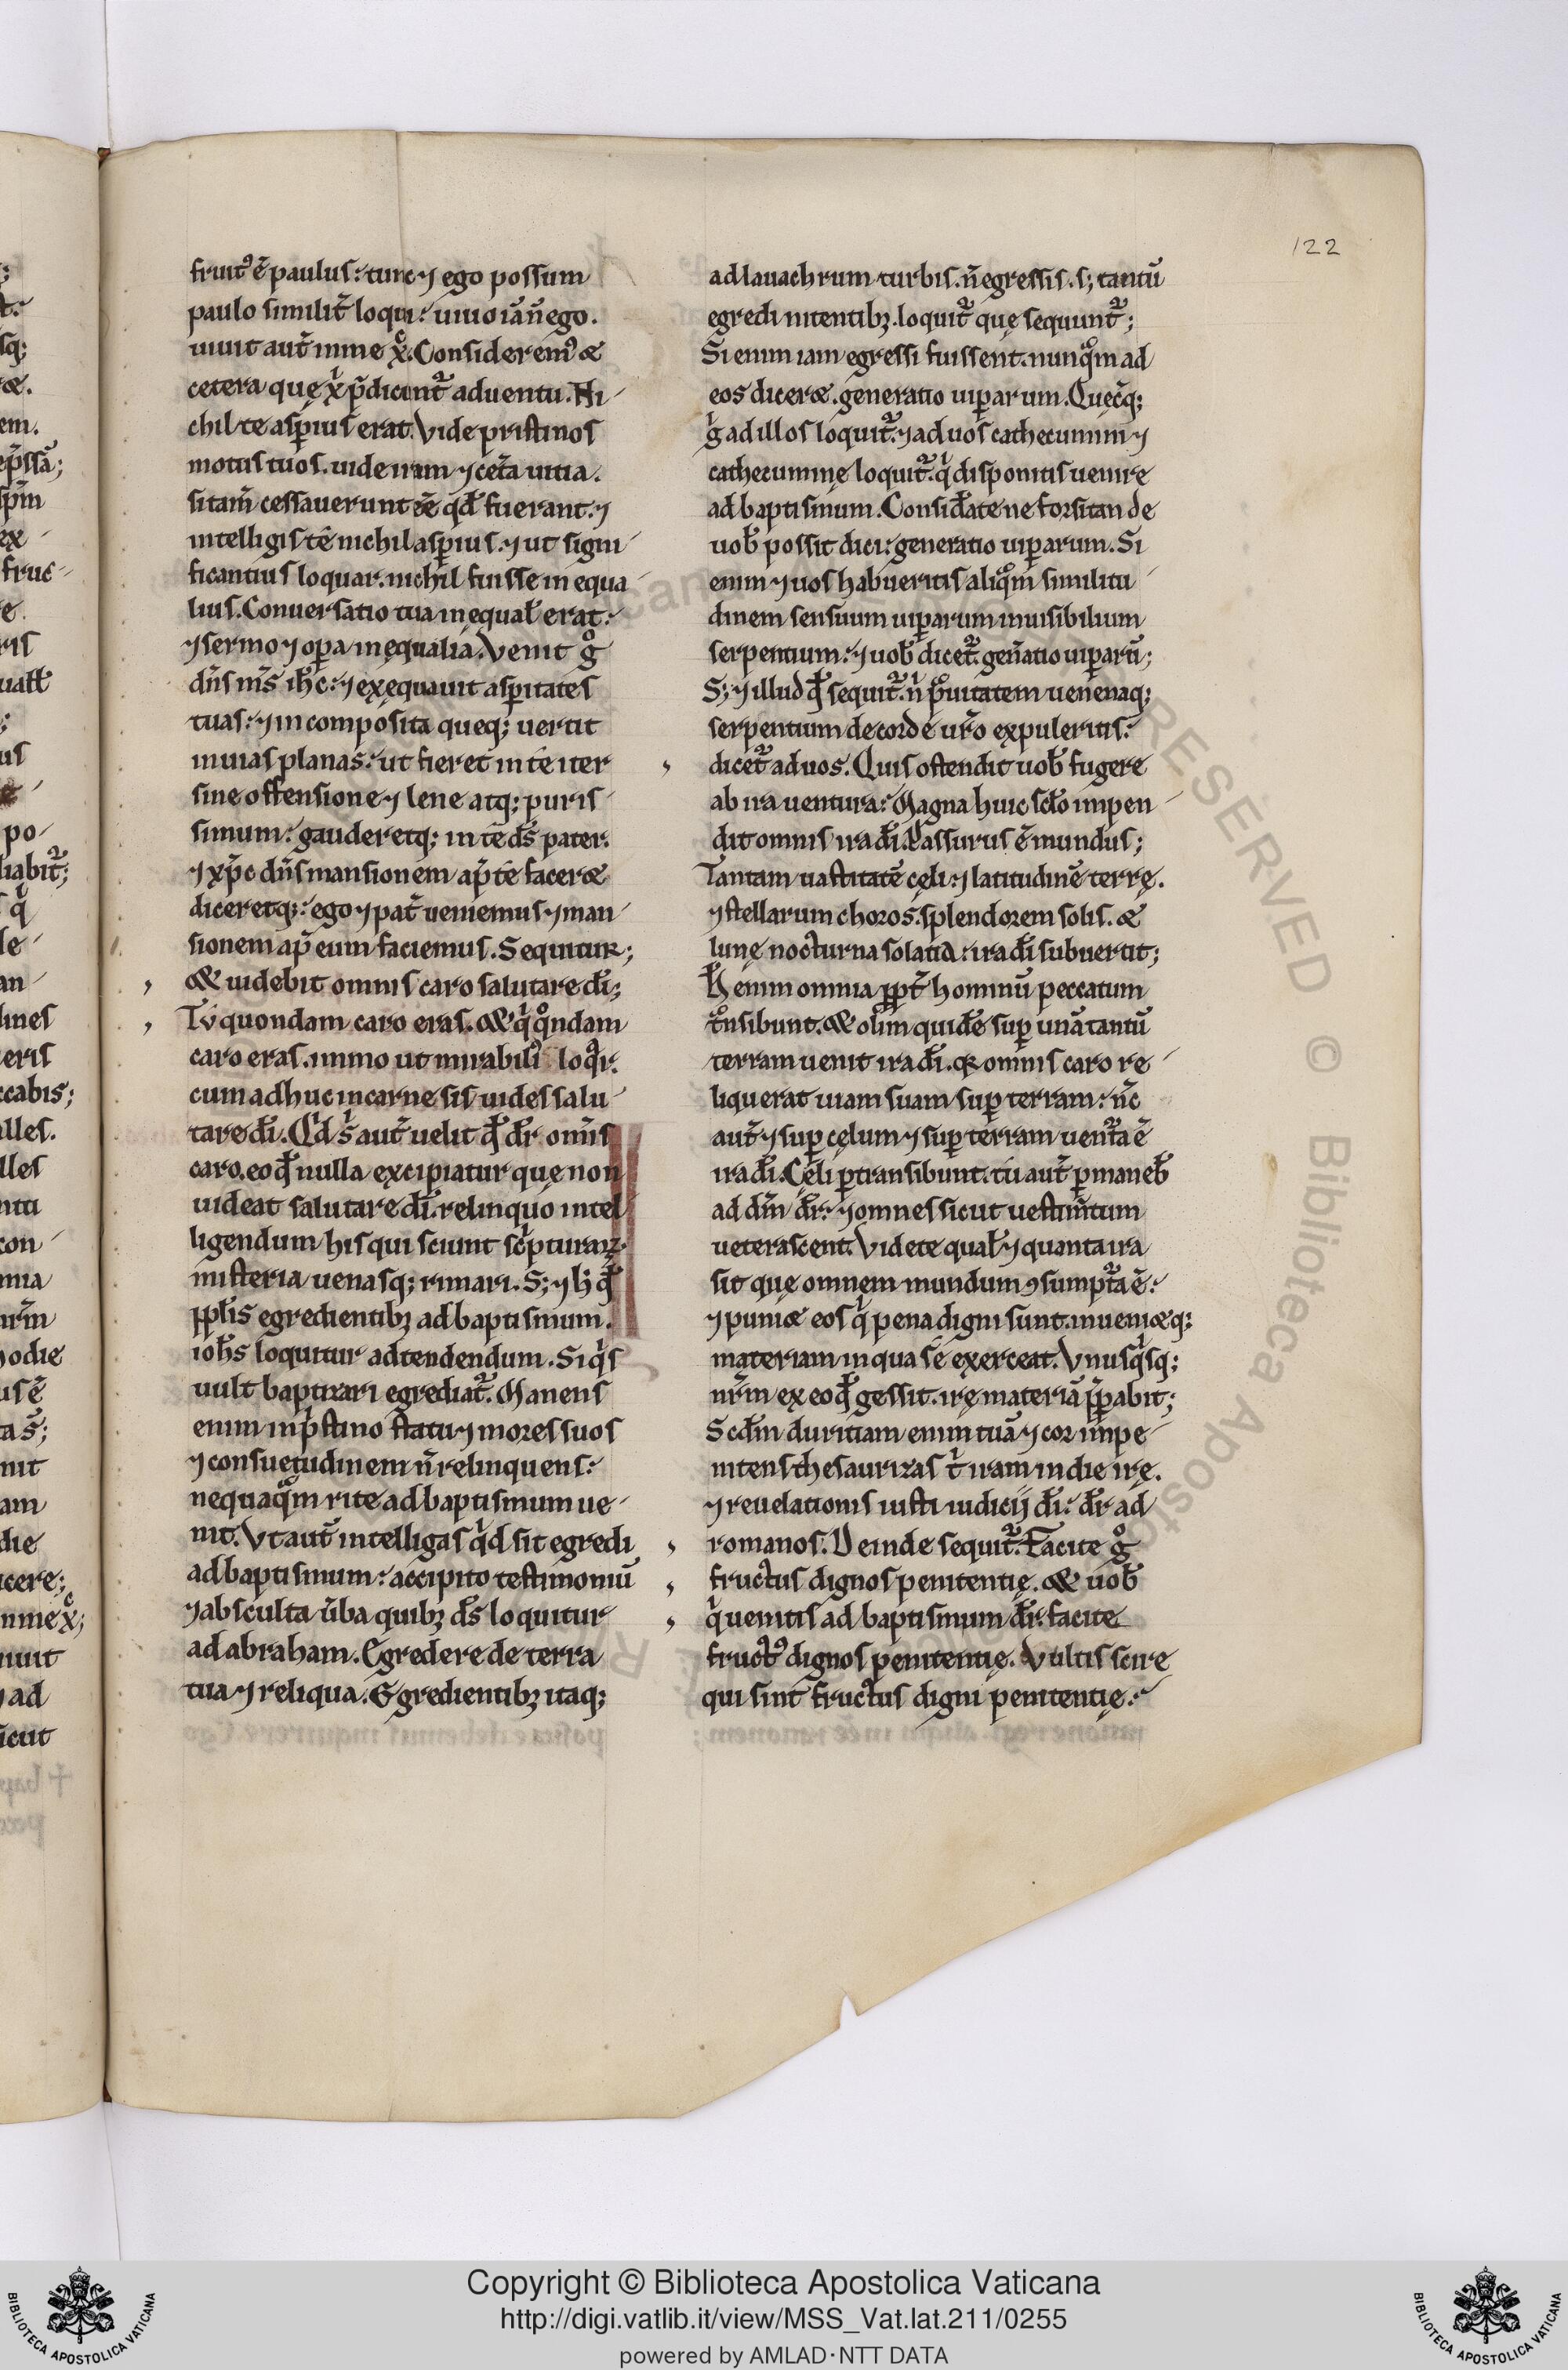 122
fruit᷒ ē paulus: tunc ⁊ ego possum
paulo similit̄ loqui: uiuo iā n̄ ego.
uiuit aut̄ in me xͨ. Considerem᷒ &
cetera que xͥ p̄dicant᷑ aduentu. Ni
chil te asperius erat. Vide pristinos
motus tuos. uide iram ⁊ cet̄a uitia.
si tam̄ cessauerunt eē qd̄ fuerant. ⁊
intelligis te nichil asperius. ⁊ ut signi
ficantius loquar. nichil fuisse in equa
lius. Conuersatio tua inequał erat:
⁊ sermo ⁊ opa inęqualia. Venit gͦ
dn̄s ms̄ ih̄c: ⁊ exęquauit aspitates
tuas: ⁊ incomposita queq; uertit
in uias planas: ut fieret in te iter
sine offensione ⁊ lene atq; puris
simum: gauderetq; in te ds̄ pater.
⁊ xp̄c dn̄s mansionem ap̄ te facer&
diceretq: ego ⁊ pat̄ ueniemus ⁊ man
sionem ap̄ eum faciemus. Sequitur;
& uidebit omnis caro salutare di̅;
Tu quondam caro eras. & qͥ qͦndam
caro eras. immo ut mirabili᷒ loqͣr.
cum adhuc in carne sis uides salu
tare di̅. Qͥd sͥ aut̄ uelit qd̄ dr̄ omīs
caro. eo qd̄ nulla excipiatur que non
uideat salutare di̅. relinquo intel
ligendum his qui sciunt scͥpturaꝝ
misteria uenasq; rimari. S; ⁊ hͥ qd̄
ppl̄is egredientibꝫ ad baptismum.
ioh̄s loquitur adtendendum. Si qͥs
uult baptizari egrediat᷑. Manens
enim in pͥstino statu ⁊ mores suos
⁊ consuetudinem n̄ relinquens:
nequaqͦm rite ad baptismum ue
nit. Vt aut̄ intelligas qͥd sit egredi
ad baptismum: accipito testimoniū
⁊ absculta ūba quibꝫ ds̄ loquitur
ad abraham. Egredere de terra
tua ⁊ reliqua. Egredientibꝫ itaq;
ad lauachrum turbis. n̄ egressis. s; tantū
egredi nitentibꝫ. loquit᷑ que sequunt᷑;
Si enim iam egressi fuissent. nunqͦm ad
eos dicer&. generatio uiperarum. Quecͣq;
gͥ ad illos loquit᷑. ⁊ ad uos cathecumini ⁊
cathecumine loquit᷑. qͥ disponitis uenire
ad baptismum. Consid̄ate ne forsitan de
uob̄ possit dici: generatio uiperarum. Si
enim ⁊ uos habueritis aliqͦm similitu
dinem sensuum uiparum inuisibilium
serpentium: ⁊ uob̄ dicet᷑. gen̄atio uiparū;
S; ⁊ illud qd̄ sequit᷑. nͥ pͣuitatem uenenaq;
serpentium de corde ur̄o expuleritis:
dicet᷑ ad uos. Quis ostendit uob̄ fugere
ab ira uentura: Magna huic scło impen
dit omnis ira di̅. Passurus ē mundus;
Tantam uastitatē cęli: ⁊ latitudinē terrę.
⁊ stellarum choros. splendorem solis. &
lunę nocturna solatia: ira di̅ subuertit;
H̄ enim omnia ꝓpt̄ hominū peccatum
tͣnsibunt. & olim quidē sup unā tantū
terram uenit ira di̅. qꝛ omnis caro re
liquerat uiam suam sup terram: nͨ
aut̄ ⁊ sup cęlum ⁊ sup terram uentͣa ē
ira di̅. Celi ptransibunt. tu aut̄ pmaneb̄
ad dm̄ dr̄: ⁊ omnes sicut uestim̄tum
ueterascent. Videte qual̄ ⁊ quanta ira
sit que omnem mundum ꝯsumptͣa ē:
⁊ puni& eos qͥ pena digni sunt. inueni&q;
materiam in qua se exerceat. Vnusqͥsq;
nr̄m ex eo qd̄ gessit. irę materiā pp̄abit;
Scd̄m duritiam enim tuā ⁊ cor impe
nitens thesaurizas tͥ iram in die irę.
⁊ reuelationis iusti iudicij di̅: dr̄ ad
romanos. Deinde sequit᷑. Facite gͦ
fructus dignos penitentię. & uob̄
qͥ uenitis ad baptismum dr̄. facite
fruct᷒ dignos penitentię. Vultis scire
qui sint fructus digni penitentię:
Copyright © Biblioteca Apostolica Vaticana
http://digi.vatlib.it/view/MSS_Vat.lat.211/0255
powered by AMLAD·NTT DATA
BIBLIOTECA APOSTOLICA VATICANA
BIBLIOTECA APOSTOLICA VATICANA